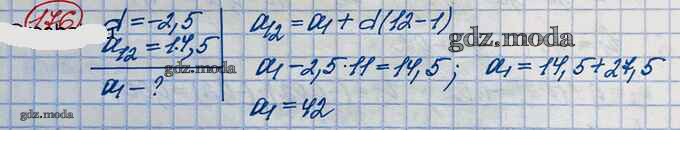 176
d = -2,5
a₁₂ = 14,5
a₁ - ?
a₁₂ = a₁ + d(12-1)
gdz.moda
a₁ - 2,5·11 = 14,5; a₁ = 14,5 + 27,5
gdz.moda
a₁ = 42
gdz.moda